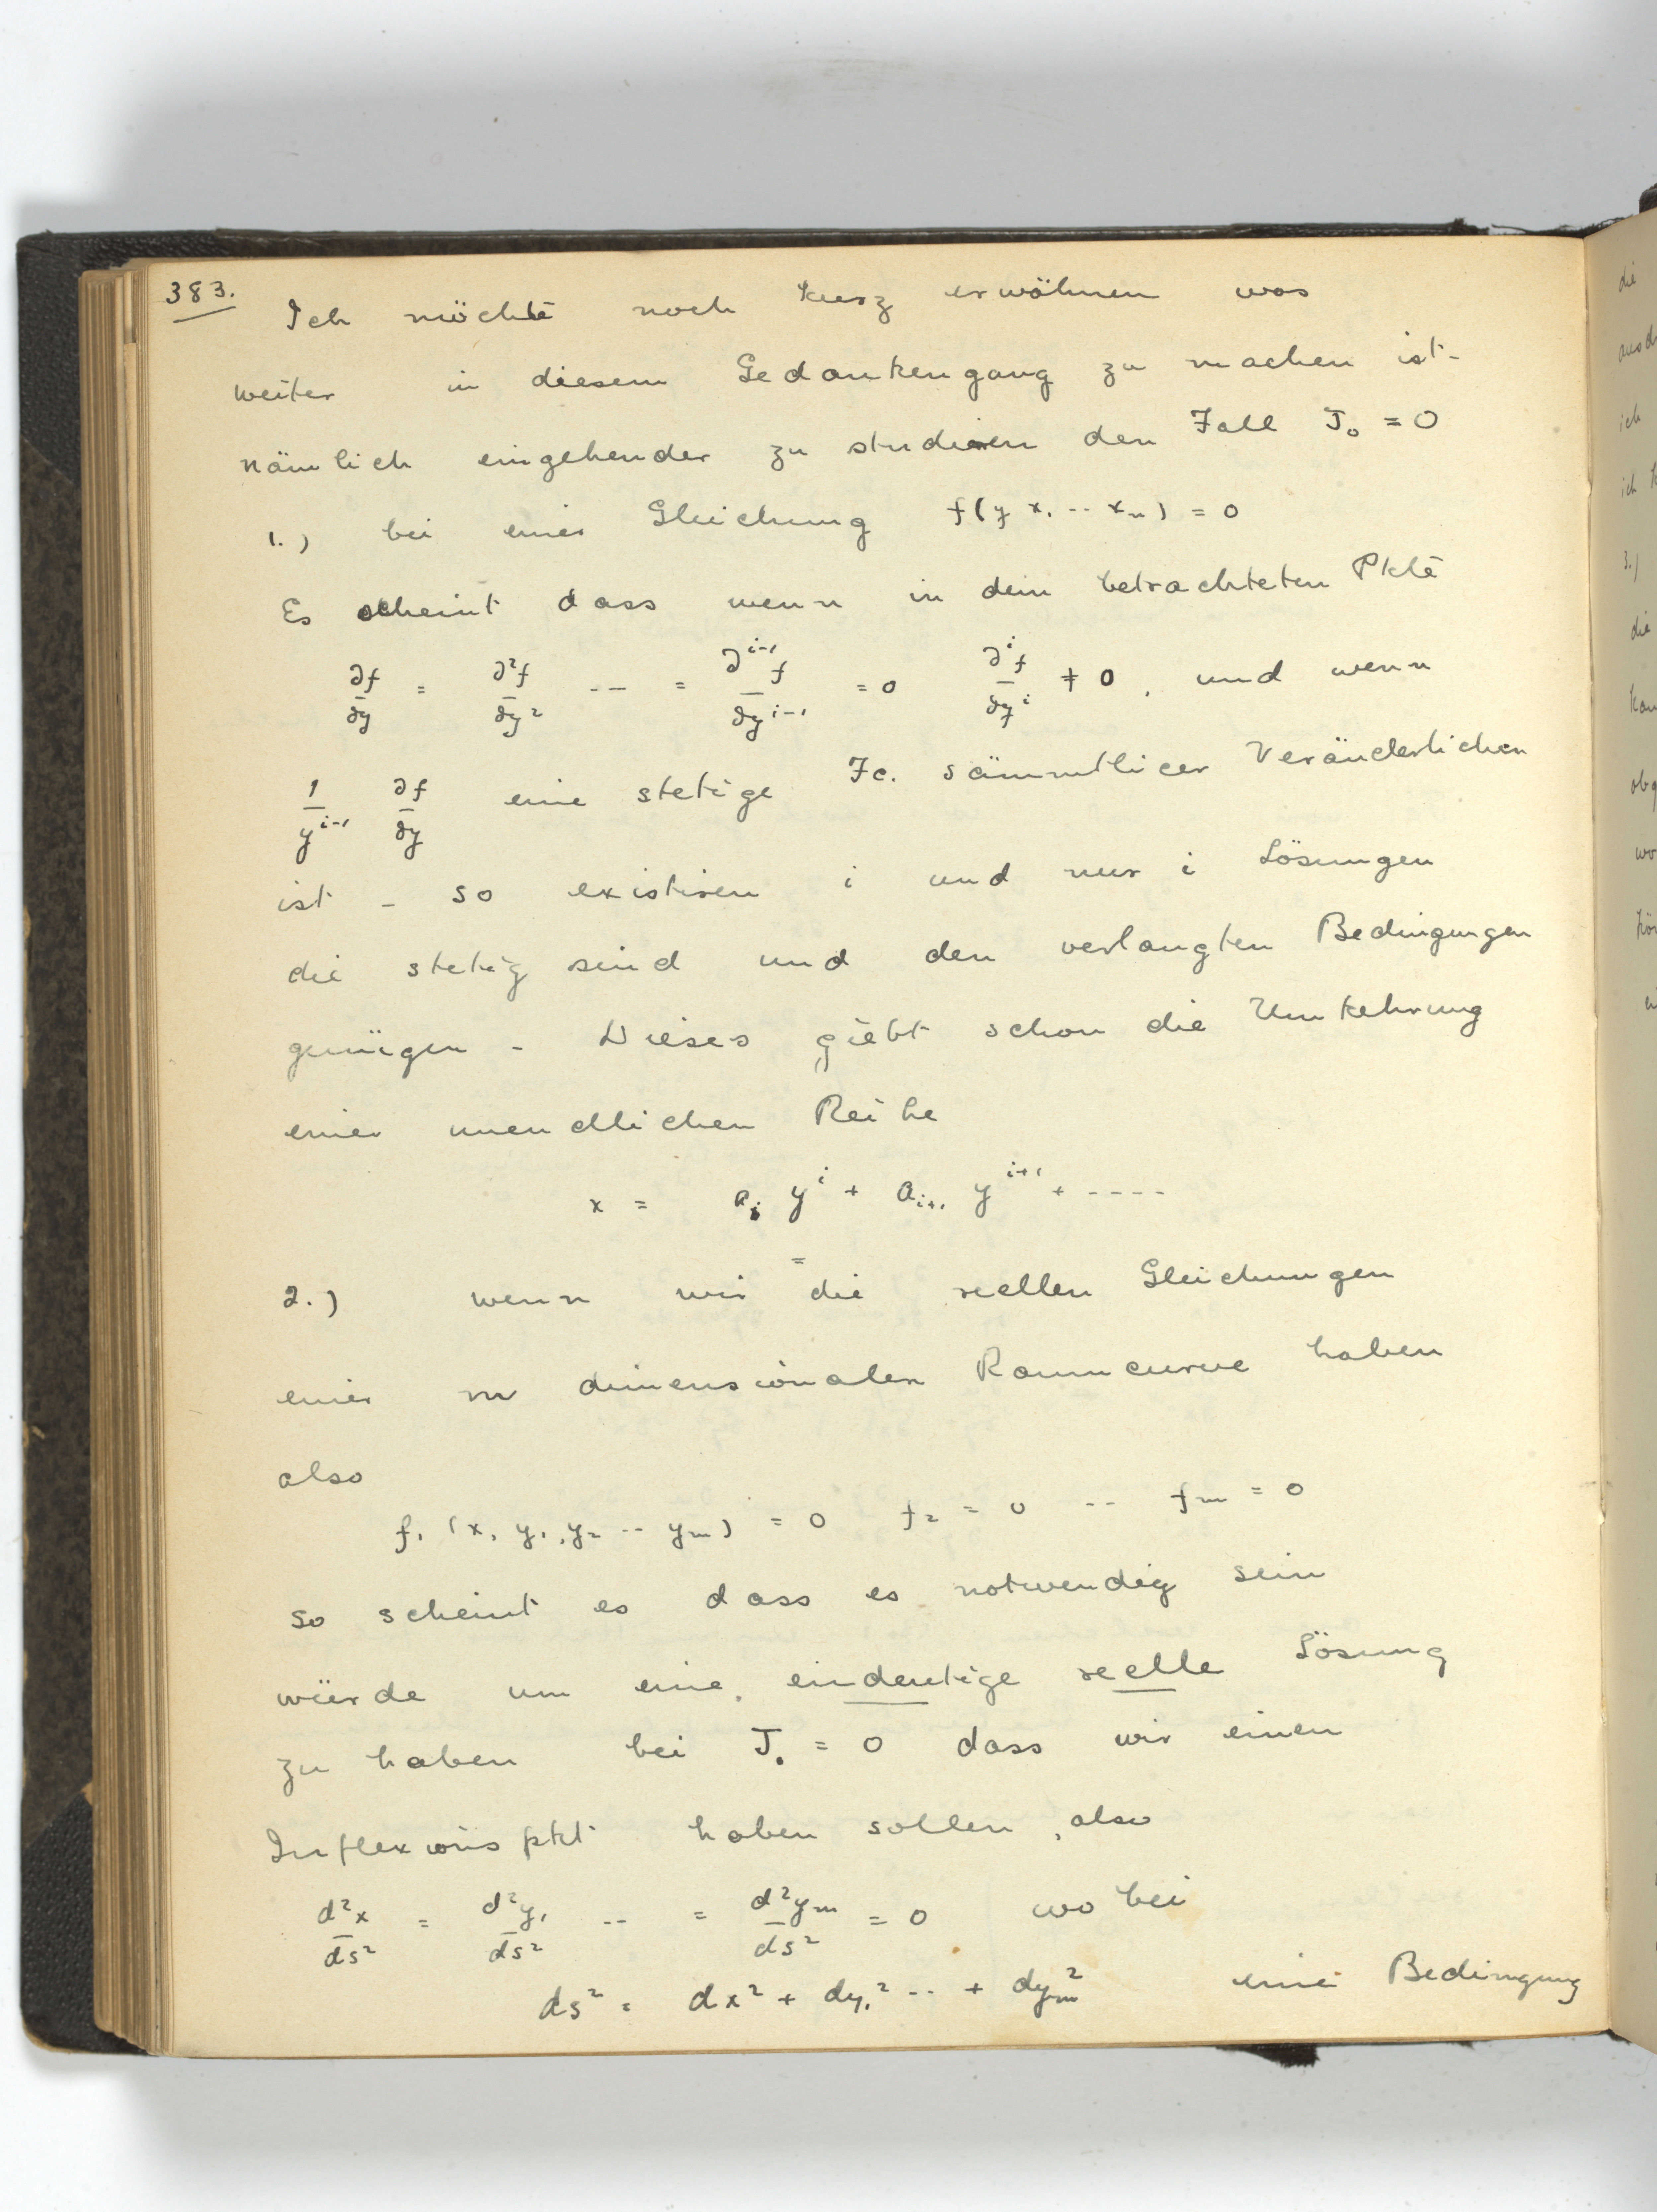 383.
Ich möchte noch kurz erwähnen was
weiter in diesem Gedankengang zu machen ist -
nämlich eingehender zu studieren den Fall J₀ = 0
1.) bei einer Gleichung f(y x₁ -- xₙ) = 0
Es scheint dass wenn in dem betrachteten Pkte
∂f/∂y = ∂²f/∂y² -- = ∂ⁱ⁻¹f/∂yⁱ⁻¹ = 0 ∂ⁱf/∂yⁱ ≠ 0, und wenn
1/yⁱ⁻¹ ∂f/∂y eine stetige Fc. sämmtlicer Veränderlichen
ist - so existiren i und nur i Lösungen
die stetig sind und den verlangten Bedingungen
genügen - Dieses giebt schon die Umkehrung
einer unendlichen Reihe
x = aᵢ yⁱ + aᵢ₊₁ yⁱ⁺¹ + ----
=
2.) wenn wir die reellen Gleichungen
einer m dimensionalen Raumcurve haben
also
f₁ (x, y₁, y₂ -- yₘ) = 0 f₂ = 0 -- fₘ = 0
so scheint es dass es notwendig sein
würde um eine, eindeutige reelle Lösung
zu haben bei J₀ = 0 dass wir einen
Inflexionspkt haben sollen, also
d²x/ds² = d²y₁/ds² -- = d²yₘ/ds² = 0 wo bei
ds² = dx² + dy₁² -- + dyₘ² eine Bedingung
die
ich
3.)
die